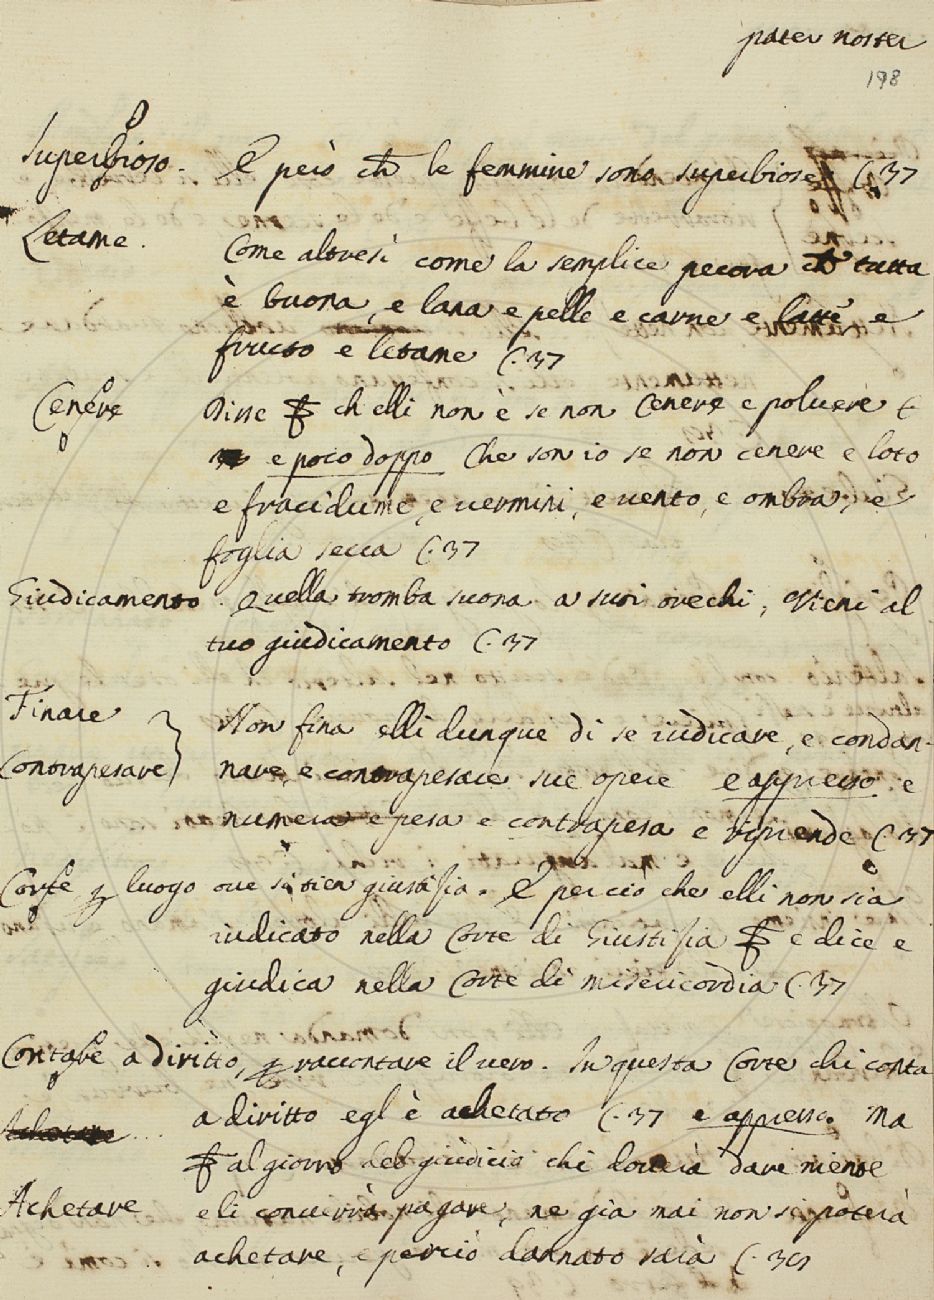 pater noster
198
Superbioso. E però ch le femmine sono superbiose C. 37
Letame. Come altresì come la semplice pecora ch tutta
è buona, e lana e pelle e carne e latte e
fructo e letame C. 37
Cenere Disse ch elli non è se non Cenere e poluere
e poco doppo Che son io se non cenere e loto
e fracidume, e uermini, e uento, e ombra, e
foglia secca C. 37
Giudicamento. Quella tromba suona a suoi orechi, Vieni al
tuo giudicamento C. 37
Finare Non fina elli dunque di se iudicare, e condan-
Contrapesare nare, e contrapesare sue opere e appresso e
numera e pesa e contrapesa e riprende C. 37
Corte luogo oue si tien giustizia. E perciò che elli non sia
iudicato nella Corte di Giustizia e dice e
giudica nella Corte di misericordia C. 37
Contare a diritto, raccontare il uero. In questa Corte chi conta
a diritto egl è achetato C. 37 e appresso. Ma
al giorno del giudicio chi dourà dare niente
Achetare e li conuerrà pagare, ne gia mai non si poterà
achetare, e perciò dannato sarà C.